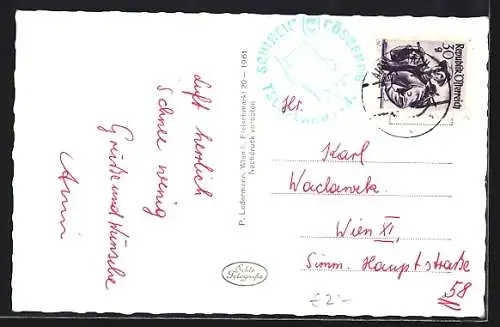 Luft herrlich
Schnee wenig
Grüße und Wünsche
Anni
P. Ledermann, Wien I., Fleischmarkt 20 – 1961
Nachdruck verboten
Echte
Fotografie
SCHIHEIL
GÖSSENDORF
30 g
Republik Österreich
Hr.
Karl
Waclawek
Wien XI,
Simm. Hauptstraße
58
£ 2.-